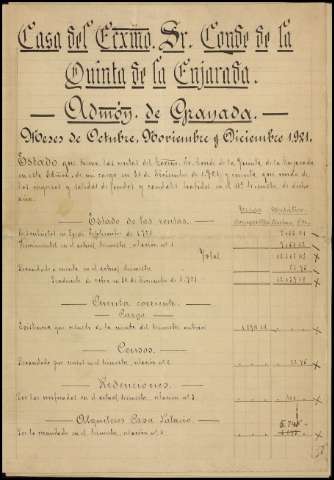 Casa del Ecxmo. Sr. Conde de la
Quinta de la Enjarada.
Admón. de Granada.
Meses de Octubre, Noviembre y Diciembre 1.921.
Estado que tienen las rentas del Ecxmo. Sr. Conde de la Quinta de la Enjarada
en esta Admón. de mi cargo en 31 de Diciembre de 1.921, y cuenta que rindo de
los ingresos y salidas de fondos y caudales habidos en el 4º trimestre de dicho
año.
Estado de las rentas.
Total
Recaudado a cuenta en el actual trimestre
Pendiente de cobro en 31 de Diciembre de 1.921
Cuenta corriente.
Cargo.
Existencia que resulta de la cuenta del trimestre anterior
Censos.
Recaudado por rentas en el trimestre, relación nº 2.
Redenciones.
Por las verificadas en el actual trimestre, relación nº 3.
Alquileres Casa Palacio.
Por lo recaudado en el trimestre, relación nº 4.